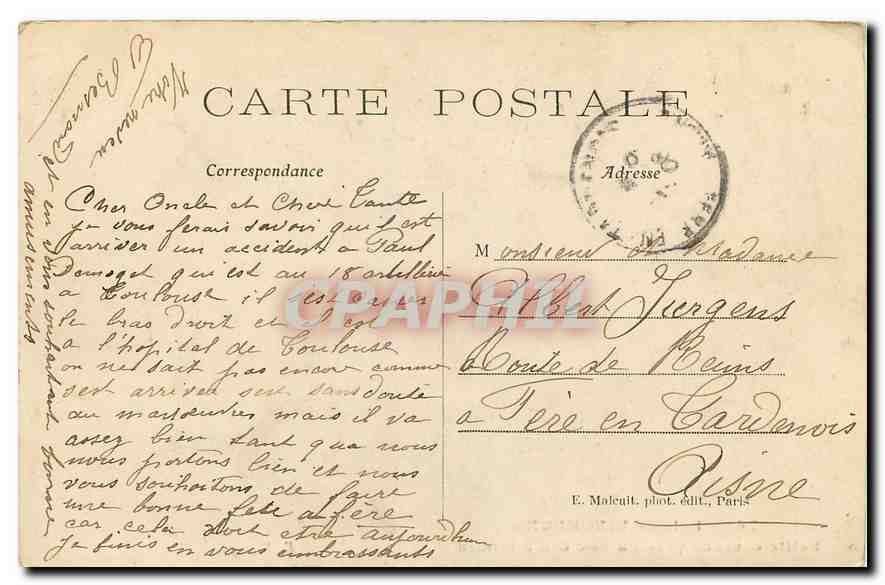 CARTE POSTALE
Correspondance
Adresse
Cher Oncle et Chere Tante
je vous ferais savoir qu'il est
arriver un accident a Paul
Demoget qui est au 18 artillerie
a Toulouse il s'est casser
le bras droit et il est
a l'hopital de Toulouse
on ne sait pas encore comme
sest arriver sest sans doute
au manoeuvres mais il va
assez bien tant qua nous
nous portons bien et nous
vous souhaitons de faire
une bonne fete a fère
car cela doit etre aujourdhui
je finis en vous embrassants
et en vous souhaitant bonne
amusements
Votre neveu
Bernard
Monsieur et Madame
Albert Jurgens
Route de Reims
a Fère en Tardenois
Aisne
E. Malcuit, phot. édit., Paris
CPAPHIL